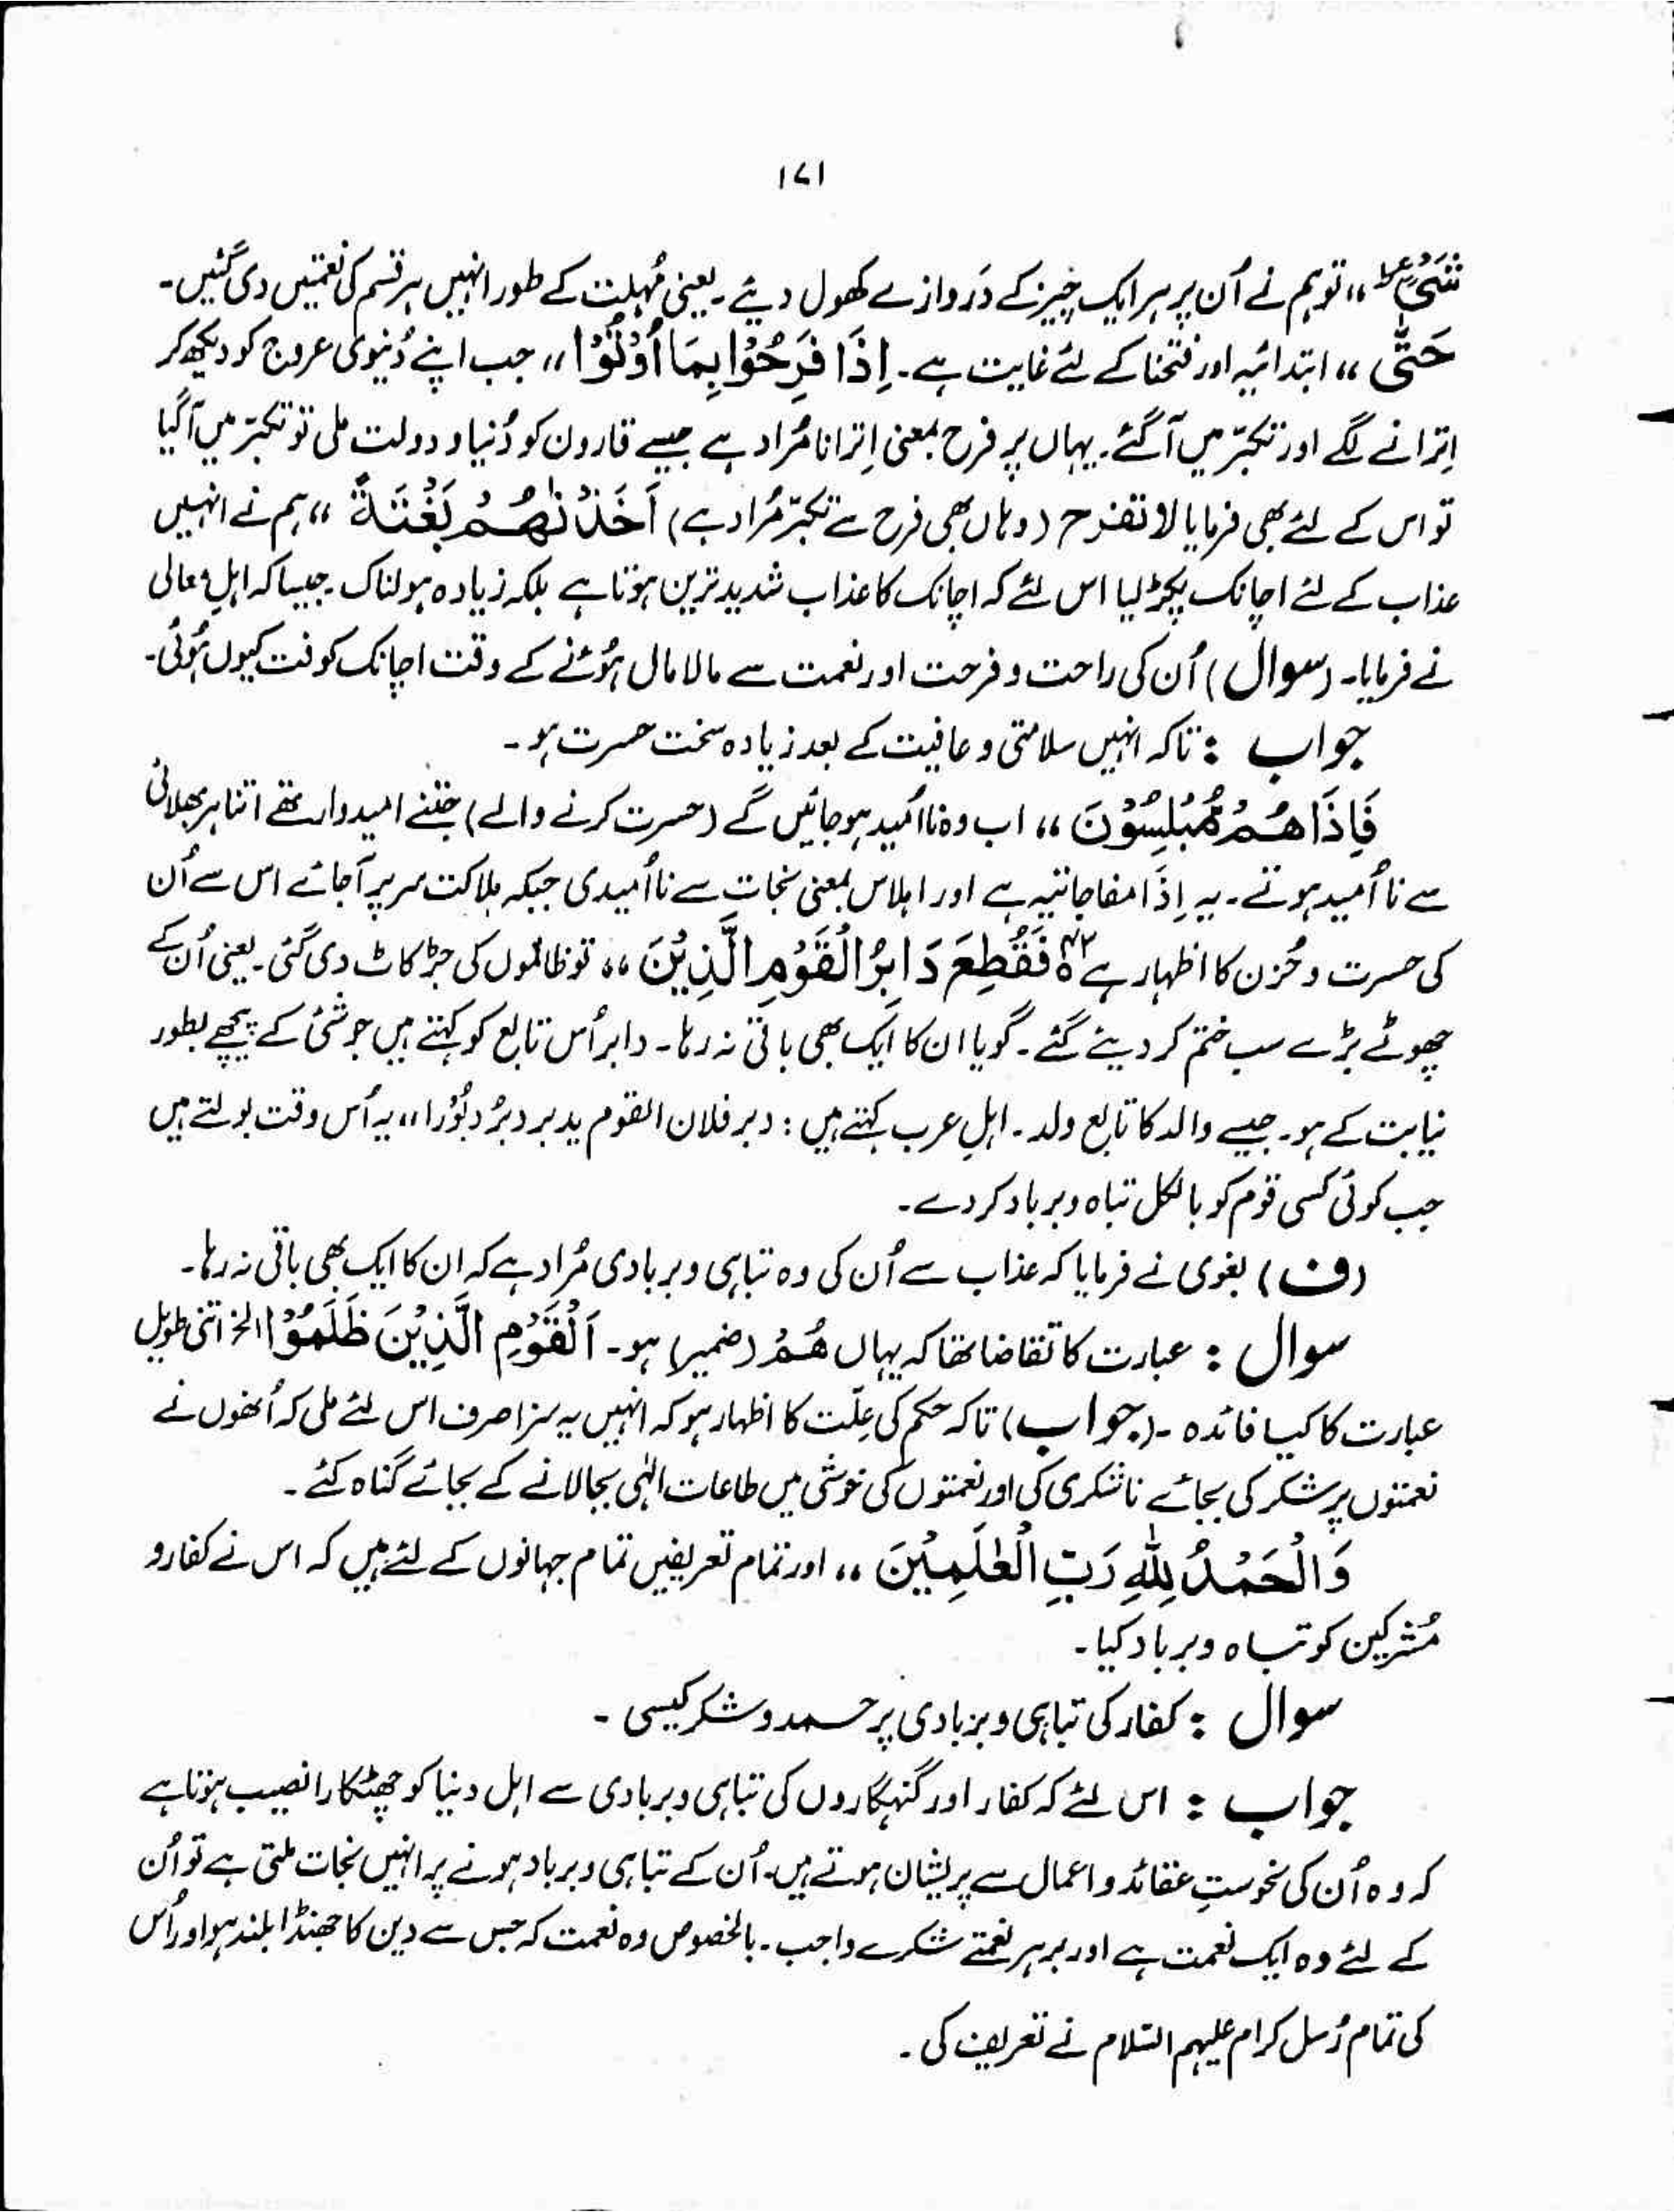 ۱۷۱
شَیْءٍ ؕ ،، تو ہم نے اُن پر ہر ایک چیز کے دَروازے کھول دیئے۔ یعنی مُہلت کے طور انہیں ہر قسم کی نعمتیں دی گئیں۔
حَتّٰی ،، ابتدائیہ اور فتحنا کے لئے غایت ہے۔ اِذَا فَرِحُوْا بِمَا اُوْتُوْا ،، جب اپنے دُنیوی عروج کو دیکھ کر
اِترانے لگے اور تکبّر میں آ گئے۔ یہاں پر فرح بمعنی اِترانا مُراد ہے جیسے قارون کو دُنیا و دولت ملی تو تکبّر میں آگیا
تو اس کے لئے بھی فرمایا لا تفرح (وہاں بھی فرح سے تکبّر مُراد ہے) اَخَذْنٰھُمْ بَغْتَةً ،، ہم نے انہیں
عذاب کے لئے اچانک پکڑ لیا اس لئے کہ اچانک کا عذاب شدید ترین ہوتا ہے بلکہ زیادہ ہولناک۔ جیسا کہ اہلِ معالی
نے فرمایا۔ (سوال) اُن کی راحت و فرحت اور نعمت سے مالا مال ہوُنے کے وقت اچانک کوفت کیوں ہُوئی۔
جواب : تاکہ انہیں سلامتی و عافیت کے بعد زیادہ سخت حسرت ہو۔
فَاِذَا ھُمْ مُّبْلِسُوْنَ ،، اب وہ نااُمید ہو جائیں گے (حسرت کرنے والے) جتنے امیدوار تھے اتنا ہر بھلائی
سے نا اُمید ہوتے۔ یہ اِذَا مفاجاتیہ ہے اور ابلاس بمعنی نجات سے نااُمیدی جبکہ ہلاکت سر پر آجائے اس سے اُن
کی حسرت و حُزن کا اظہار ہے ○ فَقُطِعَ دَابِرُ الْقَوْمِ الَّذِیْنَ ،، تو ظالموں کی جڑ کاٹ دی گئی۔ یعنی اُن کے
چھوٹے بڑے سب ختم کر دیئے گئے۔ گویا ان کا ایک بھی باقی نہ رہا۔ دابر اُس تابع کو کہتے ہیں جو شئ کے پیچھے بطور
نیابت کے ہو۔ جیسے والد کا تابع ولد۔ اہلِ عرب کہتے ہیں : دبر فلان القوم یدبر دبرُ دبُوْرا ،، یہ اُس وقت بولتے ہیں
جب کوئی کسی قوم کو بالکل تباہ و برباد کر دے۔
(ف) بغوی نے فرمایا کہ عذاب سے اُن کی وہ تباہی و بربادی مُراد ہے کہ ان کا ایک بھی باقی نہ رہا۔
سوال : عبارت کا تقاضا تھا کہ یہاں ھُمْ (ضمیر) ہو۔ اَلْقَوْمِ الَّذِیْنَ ظَلَمُوْا الخ اتنی طویل
عبارت کا کیا فائدہ۔ (جواب) تاکہ حکم کی عِلّت کا اظہار ہو کہ انہیں یہ سزا صرف اس لئے ملی کہ اُنھوں نے
نعمتوں پر شکر کی بجائے ناشکری کی اور نعمتوں کی خوشی میں طاعات الٰہی بجا لانے کے بجائے گناہ کئے۔
وَالْحَمْدُ لِلّٰہِ رَبِّ الْعٰلَمِیْنَ ،، اور تمام تعریفیں تمام جہانوں کے لئے ہیں کہ اس نے کفار و
مُشرکین کو تباہ و برباد کیا۔
سوال : کفار کی تباہی و بربادی پر حمد و شکر کیسی۔
جواب : اس لئے کہ کفار اور گنہگاروں کی تباہی و بربادی سے اہل دنیا کو چھٹکارا نصیب ہوتا ہے
کہ وہ اُن کی نحوستِ عقائد و اعمال سے پریشان ہوتے ہیں۔ اُن کے تباہی و برباد ہونے پر انہیں نجات ملتی ہے تو اُن
کے لئے وہ ایک نعمت ہے اور بر ہر نعمتے شکرے واجب۔ بالخصوص وہ نعمت کہ جس سے دین کا جھنڈا بلند ہو اور اُس
کی تمام رُسل کرام علیہم السّلام نے تعریف کی۔